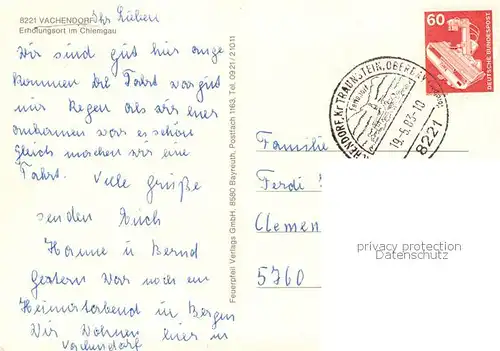 8221 VACHENDORF
Erholungsort im Chiemgau
Ihr Lieben
Wir sind gut hier ange
kommen die Fahrt war gut
nur Regen als wir hier
ankamen war es schön
gleich machen wir eine
Fahrt. Viele Grüße
senden Euch
Hanne u Bernd
Gestern war noch ein
Heimatabend in Bergen
Wir wohnen hier in
Vachendorf
Feuerpfeil Verlags GmbH, 8580 Bayreuth, Postfach 1163, Tel. 0921/21011
60
DEUTSCHE BUNDESPOST
VACHENDORF, Kr TRAUNSTEIN, OBERBAY
Erholungsort
19.-5.83-10
8221
Familie
Ferdi
Clemen
5760
privacy protection
Datenschutz